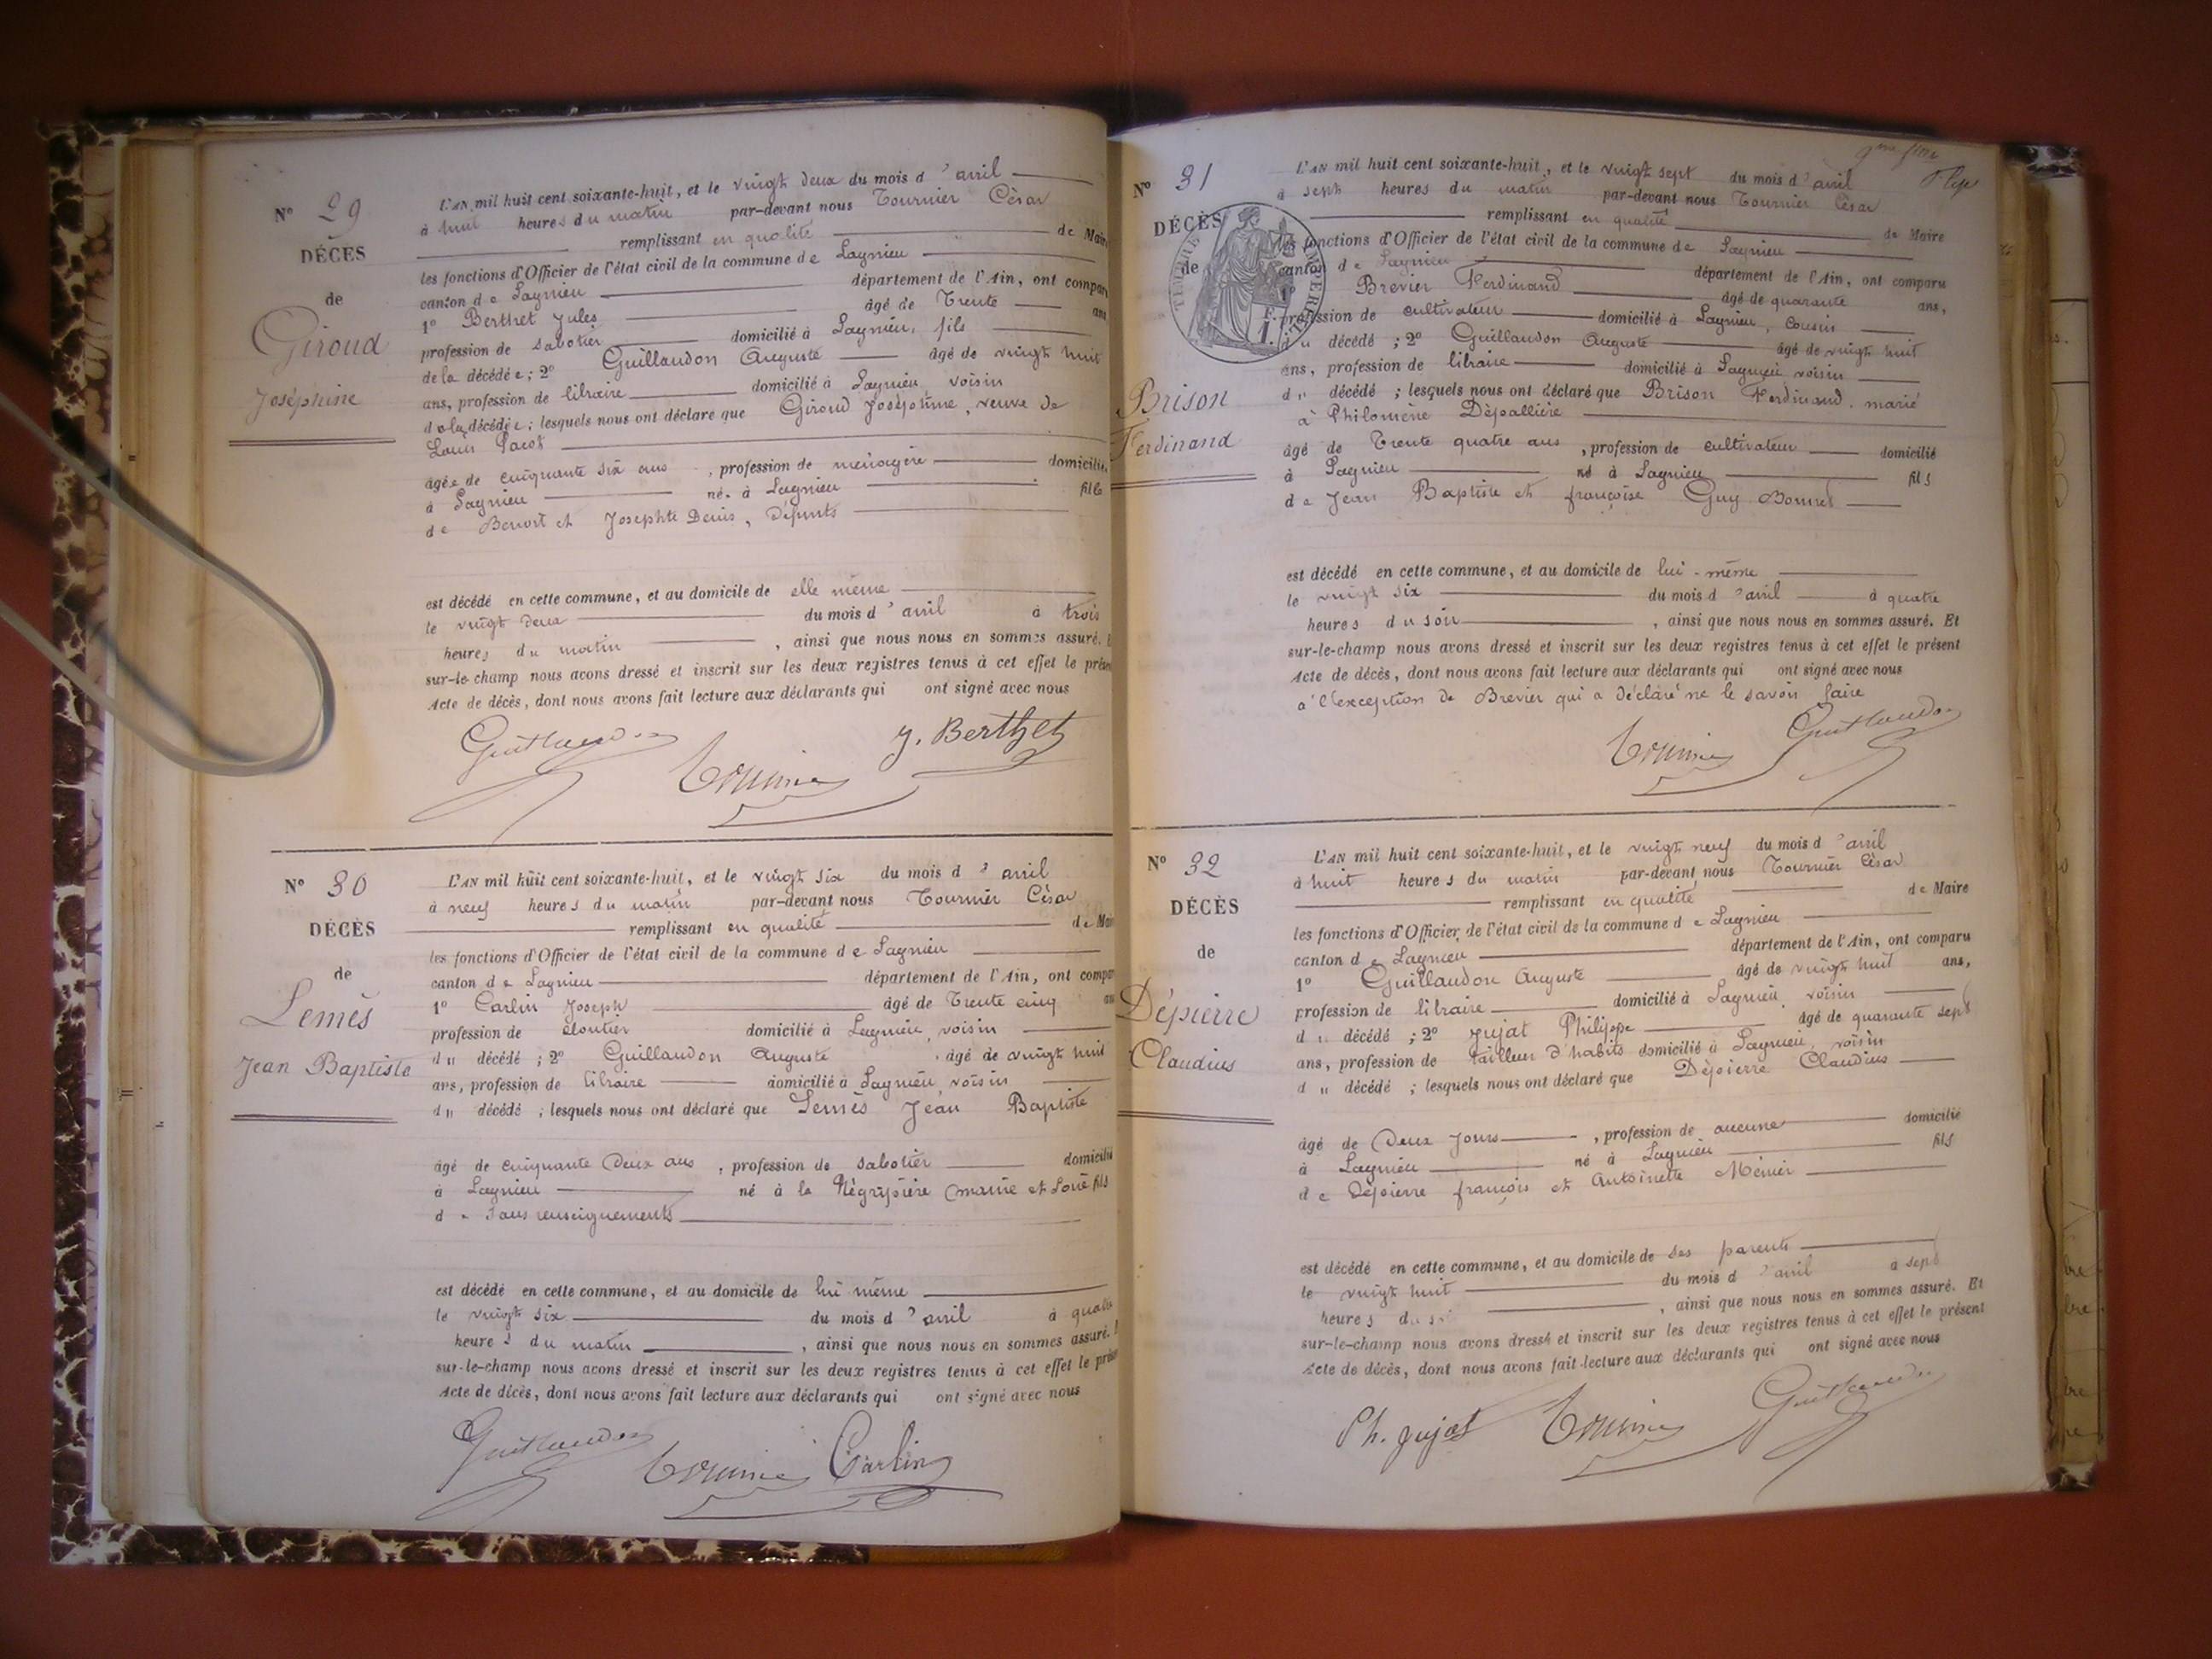 N° 29
DÉCÈS
de
Giroud
Joséphine
L'AN mil huit cent soixante-huit, et le vingt deux du mois d'avril
à huit heures du matin par-devant nous Tournier César
remplissant en qualité de Maire
les fonctions d'Officier de l'état civil de la commune de Lagnieu
canton de Lagnieu département de l'Ain, ont compar
1° Berthet Jules âgé de Trente ans
profession de sabotier domicilié à Lagnieu, fils
de la décédée ; 2° Guillaudon Auguste âgé de vingt huit
ans, profession de libraire domicilié à Lagnieu, voisin
de la décédée ; lesquels nous ont déclaré que Giroud Joséphine, veuve de
Louis Pacot
âgée de cinquante six ans, profession de ménagère domicilié
à Lagnieu née à Lagnieu fille
de Benoit et Josephte Denis, défunts
est décédé en cette commune, et au domicile de elle même
le vingt deux du mois d'avril à trois
heures du matin, ainsi que nous nous en sommes assuré. E
sur-le-champ nous avons dressé et inscrit sur les deux registres tenus à cet effet le prése
Acte de décès, dont nous avons fait lecture aux déclarants qui ont signé avec nous
Guillaudon Tournier J. Berthet
N° 30
DÉCÈS
de
Lemès
Jean Baptiste
L'AN mil huit cent soixante-huit, et le vingt six du mois d'avril
à neuf heures du matin par-devant nous Tournier César
remplissant en qualité de Mai
les fonctions d'Officier de l'état civil de la commune de Lagnieu
canton de Lagnieu département de l'Ain, ont compar
1° Carlin Joseph âgé de Trente cinq an
profession de cloutier domicilié à Lagnieu, voisin
du décédé ; 2° Guillaudon Auguste âgé de vingt huit
ans, profession de libraire domicilié à Lagnieu, voisin
du décédé ; lesquels nous ont déclaré que Lemès Jean Baptiste
âgé de cinquante Deux ans, profession de sabotier domicilié
à Lagnieu né à la (maine et Loire fils
de Sans renseignements
est décédé en cette commune, et au domicile de lui même
le vingt six du mois d'avril à quatre
heures du matin, ainsi que nous nous en sommes assuré.
sur-le-champ nous avons dressé et inscrit sur les deux registres tenus à cet effet le prése
Acte de décès, dont nous avons fait lecture aux déclarants qui ont signé avec nous
Guillaudon Tournier Carlin
N° 31
DÉCÈS
de
Brison
Ferdinand
TIMBRE IMPÉRIAL
L'AN mil huit cent soixante-huit, et le vingt sept du mois d'avril
à sept heures du matin par-devant nous Tournier César
remplissant en qualité de Maire
les fonctions d'Officier de l'état civil de la commune de Lagnieu
canton de Lagnieu département de l'Ain, ont comparu
1° Brevier Ferdinand âgé de quarante ans,
profession de cultivateur domicilié à Lagnieu, cousin
du décédé ; 2° Guillaudon Auguste âgé de vingt huit
ans, profession de libraire domicilié à Lagnieu voisin
du décédé ; lesquels nous ont déclaré que Brison Ferdinand, marié
à Philomène Dépallière
âgé de Trente quatre ans, profession de cultivateur domicilié
à Lagnieu né à Lagnieu fils
de Jean Baptiste et françoise Guy Bonnet
est décédé en cette commune, et au domicile de lui-même
le vingt six du mois d'avril à quatre
heures du soir, ainsi que nous nous en sommes assuré. Et
sur-le-champ nous avons dressé et inscrit sur les deux registres tenus à cet effet le présent
Acte de décès, dont nous avons fait lecture aux déclarants qui ont signé avec nous
à l'exception de Brevier qui a déclaré ne le savoir faire
Tournier Guillaudon
N° 32
DÉCÈS
de
Dépierre
Claudius
L'AN mil huit cent soixante-huit, et le vingt neuf du mois d'avril
à huit heures du matin par-devant nous Tournier César
remplissant en qualité de Maire
les fonctions d'Officier de l'état civil de la commune de Lagnieu
canton de Lagnieu département de l'Ain, ont comparu
1° Guillaudon Auguste âgé de vingt huit ans,
profession de libraire domicilié à Lagnieu, voisin
du décédé ; 2° Jujat Philippe âgé de quarante sept
ans, profession de tailleur d'habits domicilié à Lagnieu, voisin
du décédé ; lesquels nous ont déclaré que Dépierre Claudius
âgé de Deux jours, profession de aucune domicilié
à Lagnieu né à Lagnieu fils
de Dépierre françois et Antoinette Ménier
est décédé en cette commune, et au domicile de ses parents
le vingt huit du mois d'avril à sept
heures du, ainsi que nous nous en sommes assuré. Et
sur-le-champ nous avons dressé et inscrit sur les deux registres tenus à cet effet le présent
Acte de décès, dont nous avons fait lecture aux déclarants qui ont signé avec nous
Ph. Jujat Tournier Guillaudon